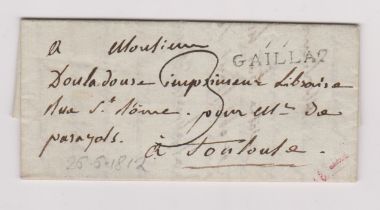 a Monsieur
GAILLAC
Douladoure imprimeur Libraire
Rue St Rome. pour Mr de
parazols.
3
à Toulouse.
25-5-1812